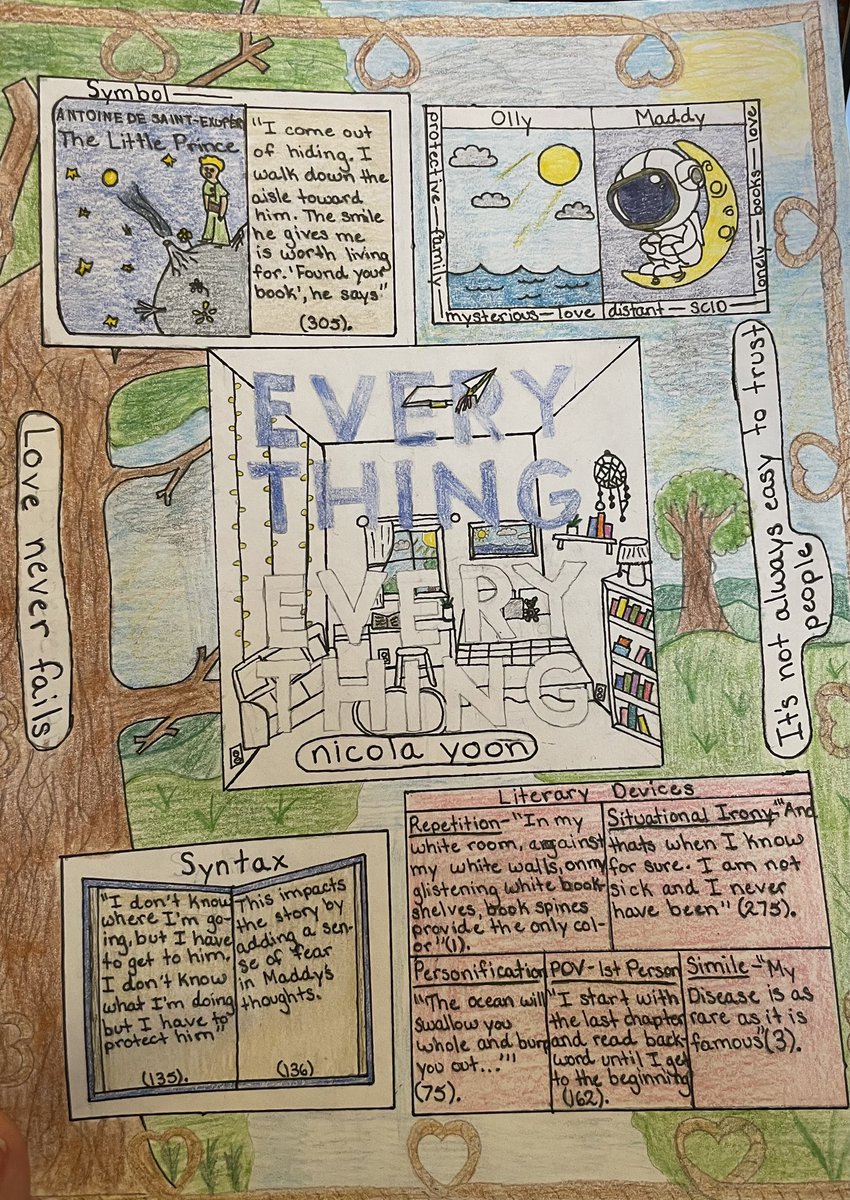 Symbol
ANTOINE DE SAINT-EXUPÉR
The Little Prince
"I come out
of hiding. I
walk down the
aisle toward
him. The smile
he gives me
is worth living
for. 'Found your
book', he says"
(305).
Olly
Maddy
protective-family-
mysterious-love
distant-SCID-
lonely-books-love
EVERY
THING
EVERY
THING
nicola yoon
Love never fails
It's not always easy to trust
people
Syntax
"I don't know
where I'm go-
ing, but I have
to get to him.
I don't know
what I'm doing
but I have to
protect him"
(135).
This impacts
the story by
adding a sen-
se of fear
in Maddy's
thoughts.
(136)
Literary Devices
Repetition-"In my
white room, against
my white walls, on my
glistening white book-
shelves, book spines
provide the only col-
or"(1).
Situational Irony-"And
thats when I know
for sure. I am not
sick and I never
have been" (275).
Personification
"The ocean will
swallow you
whole and burp
you out...'"
(75).
POV-1st Person
"I start with
the last chapter
and read back-
word until I get
to the beginning
(162).
Simile-"My
Disease is as
rare as it is
famous"(3).